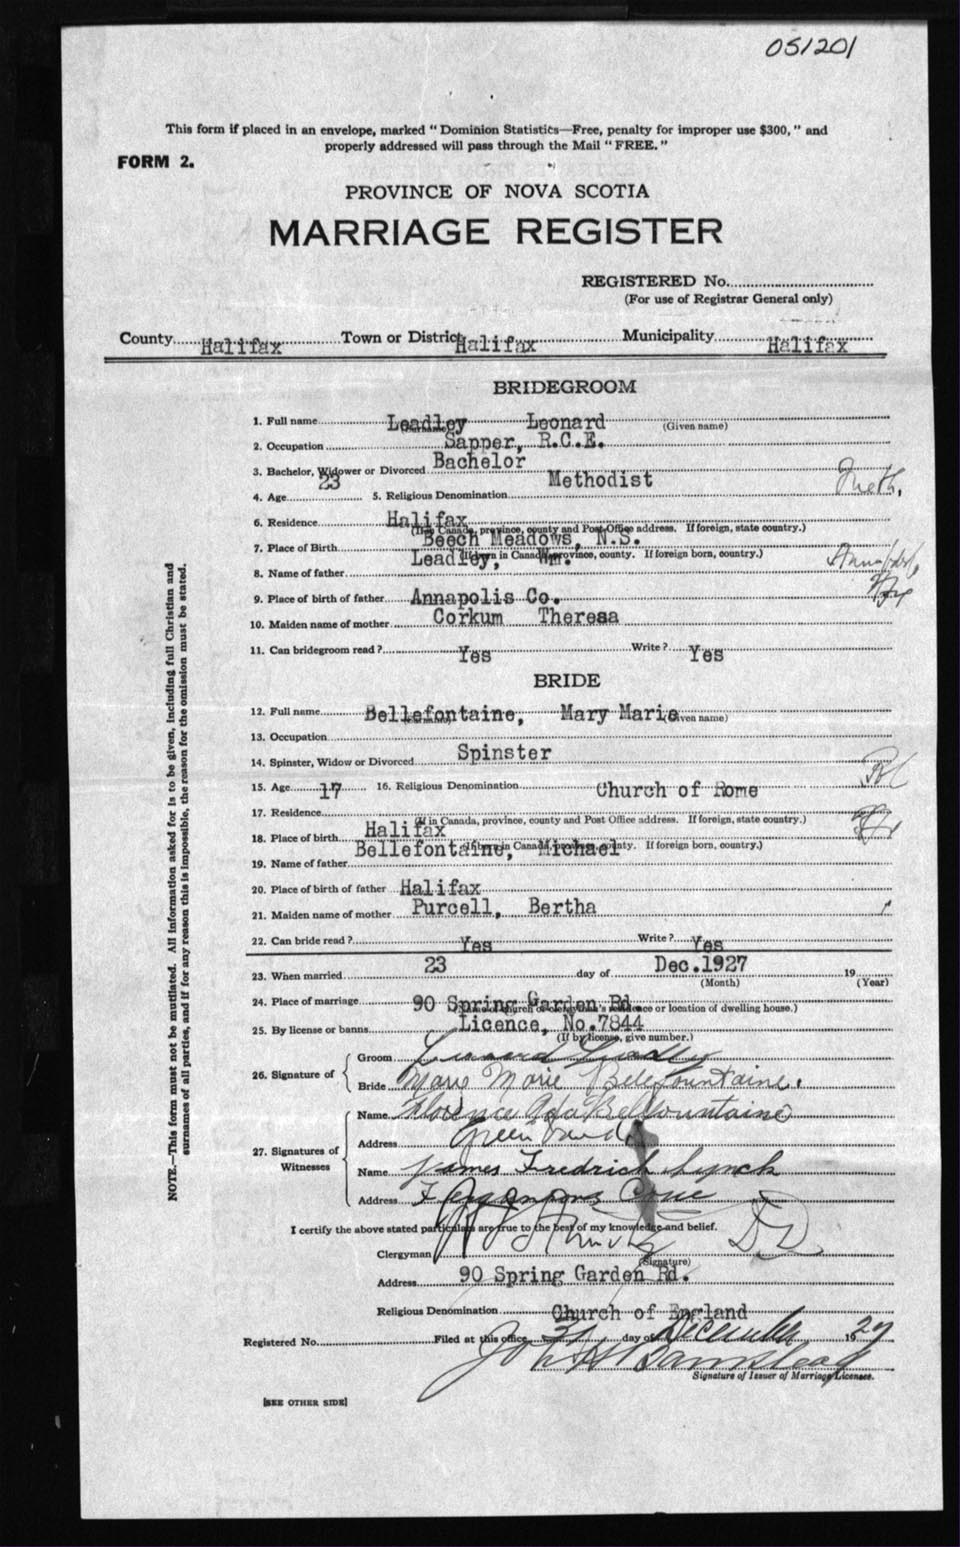 051201
This form if placed in an envelope, marked "Dominion Statistics—Free, penalty for improper use $300," and
properly addressed will pass through the Mail "FREE."
FORM 2.
PROVINCE OF NOVA SCOTIA
MARRIAGE REGISTER
REGISTERED No.
(For use of Registrar General only)
County Halifax Town or District Halifax Municipality Halifax
BRIDEGROOM
1. Full name Leadley Leonard (Given name)
2. Occupation Sapper, R.C.E.
3. Bachelor, Widower or Divorced Bachelor
4. Age 23 5. Religious Denomination Methodist Meth.
6. Residence Halifax
(If in Canada, province, county and Post Office address. If foreign, state country.)
7. Place of Birth Beech Meadows, N.S.
(If born in Canada, province, county. If foreign born, country.)
8. Name of father Leadley, Wm.
9. Place of birth of father Annapolis Co.
10. Maiden name of mother Corkum Theresa
11. Can bridegroom read? Yes Write? Yes
BRIDE
12. Full name Bellefontaine, Mary Marie (Given name)
13. Occupation
14. Spinster, Widow or Divorced Spinster
15. Age 17 16. Religious Denomination Church of Rome
17. Residence
(If in Canada, province, county and Post Office address. If foreign, state country.)
18. Place of birth Halifax
(If born in Canada, province, county. If foreign born, country.)
19. Name of father Bellefontaine, Michael
20. Place of birth of father Halifax
21. Maiden name of mother Purcell, Bertha
22. Can bride read? Yes Write? Yes
23. When married 23 day of Dec. 1927 19
(Month) (Year)
24. Place of marriage 90 Spring Garden Rd
(Name of church or clergyman's residence or location of dwelling house.)
25. By license or banns Licence, No. 7844
(If by license, give number.)
26. Signature of
Groom Leonard Leadley
Bride Mary Marie Bellefountaine.
27. Signatures of Witnesses
Name Florence Ada Bellfountaine
Address
Name James Fredrick Lynch
Address Cove
I certify the above stated particulars are true to the best of my knowledge and belief.
Clergyman
(Signature)
Address 90 Spring Garden Rd.
Religious Denomination Church of England
Registered No. Filed at this office 31 day of December 1927
Signature of Issuer of Marriage Licenses.
[SEE OTHER SIDE]
NOTE.—This form must not be mutilated. All information asked for is to be given, including full Christian and
surnames of all parties, and if for any reason this is impossible, the reason for the omission must be stated.